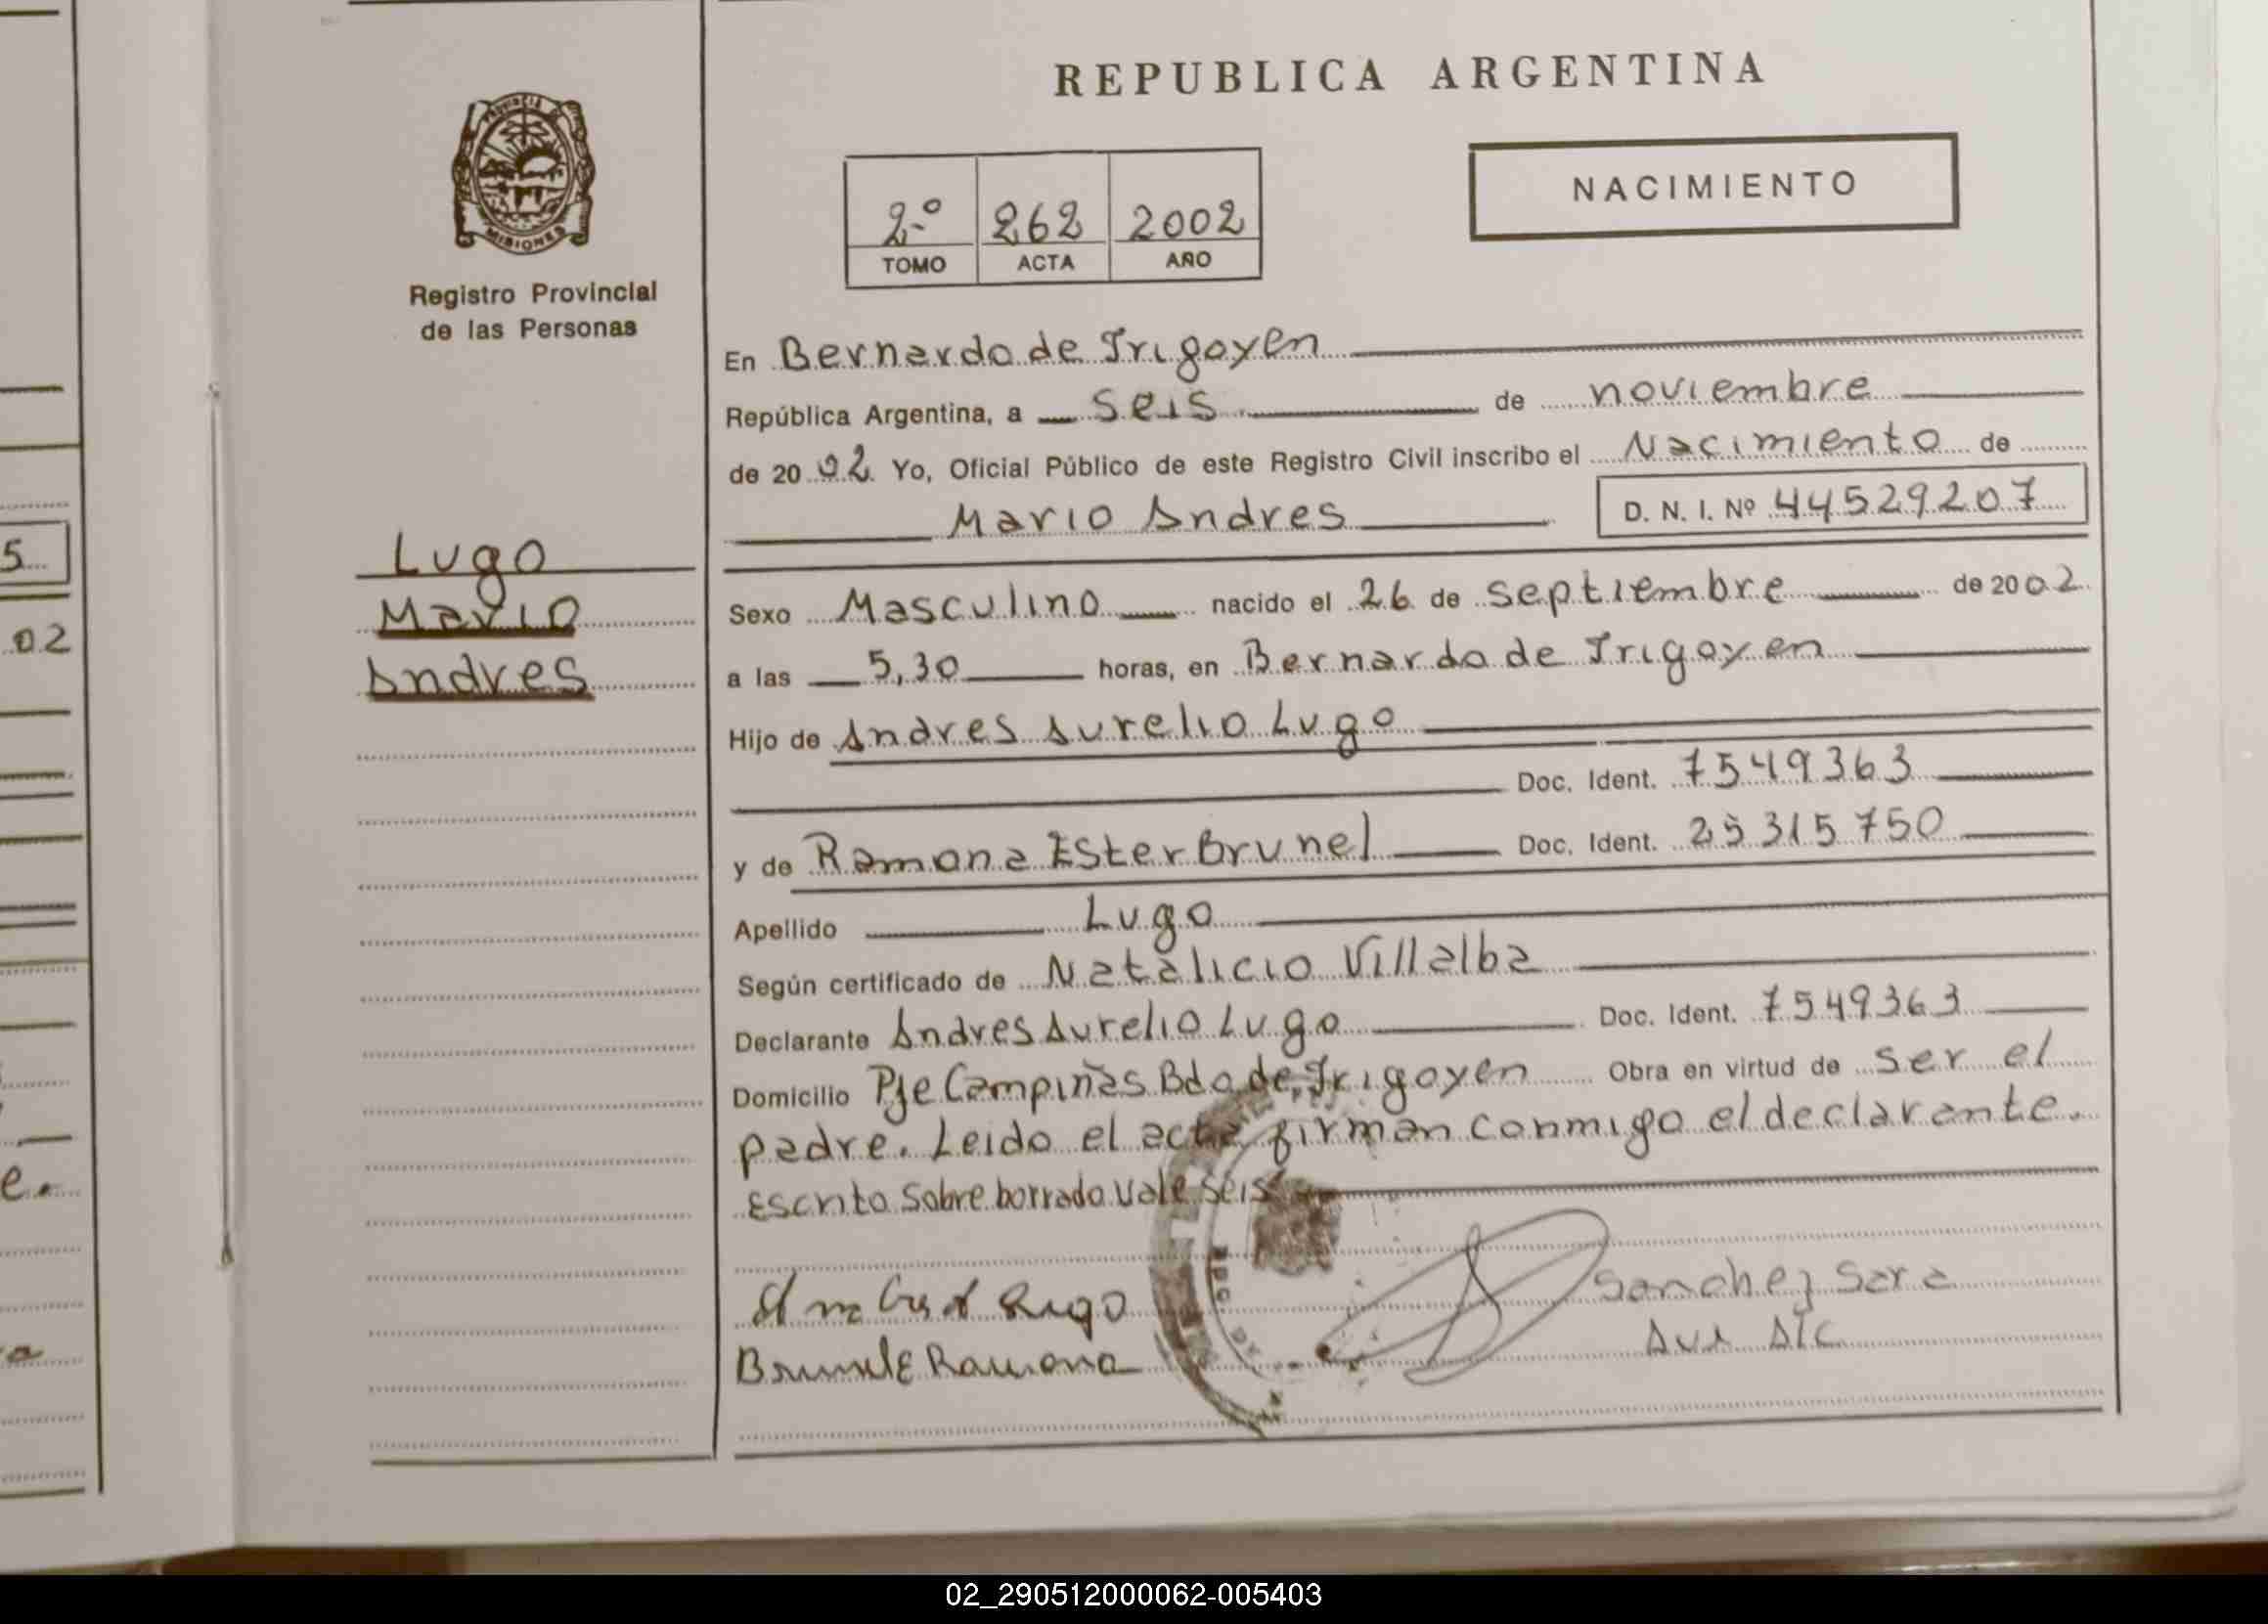 REPUBLICA ARGENTINA
PROVINCIA
MISIONES
Registro Provincial
de las Personas
NACIMIENTO
2º 262 2002
TOMO ACTA AÑO
En Bernardo de Irigoyen
República Argentina, a seis de noviembre
de 2002 Yo, Oficial Público de este Registro Civil inscribo el Nacimiento de
Mario Andres D. N. I. Nº 44529207
Lugo
Mario
Andres
Sexo Masculino nacido el 26 de septiembre de 2002
a las 5,30 horas, en Bernardo de Irigoyen
Hijo de Andres Aurelio Lugo
Doc. Ident. 7549363
y de Ramona Ester Brunel Doc. Ident. 25315750
Apellido Lugo
Según certificado de Natalicio Villalba
Declarante Andres Aurelio Lugo Doc. Ident. 7549363
Domicilio Pje Campiñas Bdo de Irigoyen Obra en virtud de ser el
padre. Leido el acta firman conmigo el declarante.
Escrito sobre borrado vale seis
Lugo
Ramona
Sanchez Sara
5
02
e.
a
02_290512000062-005403